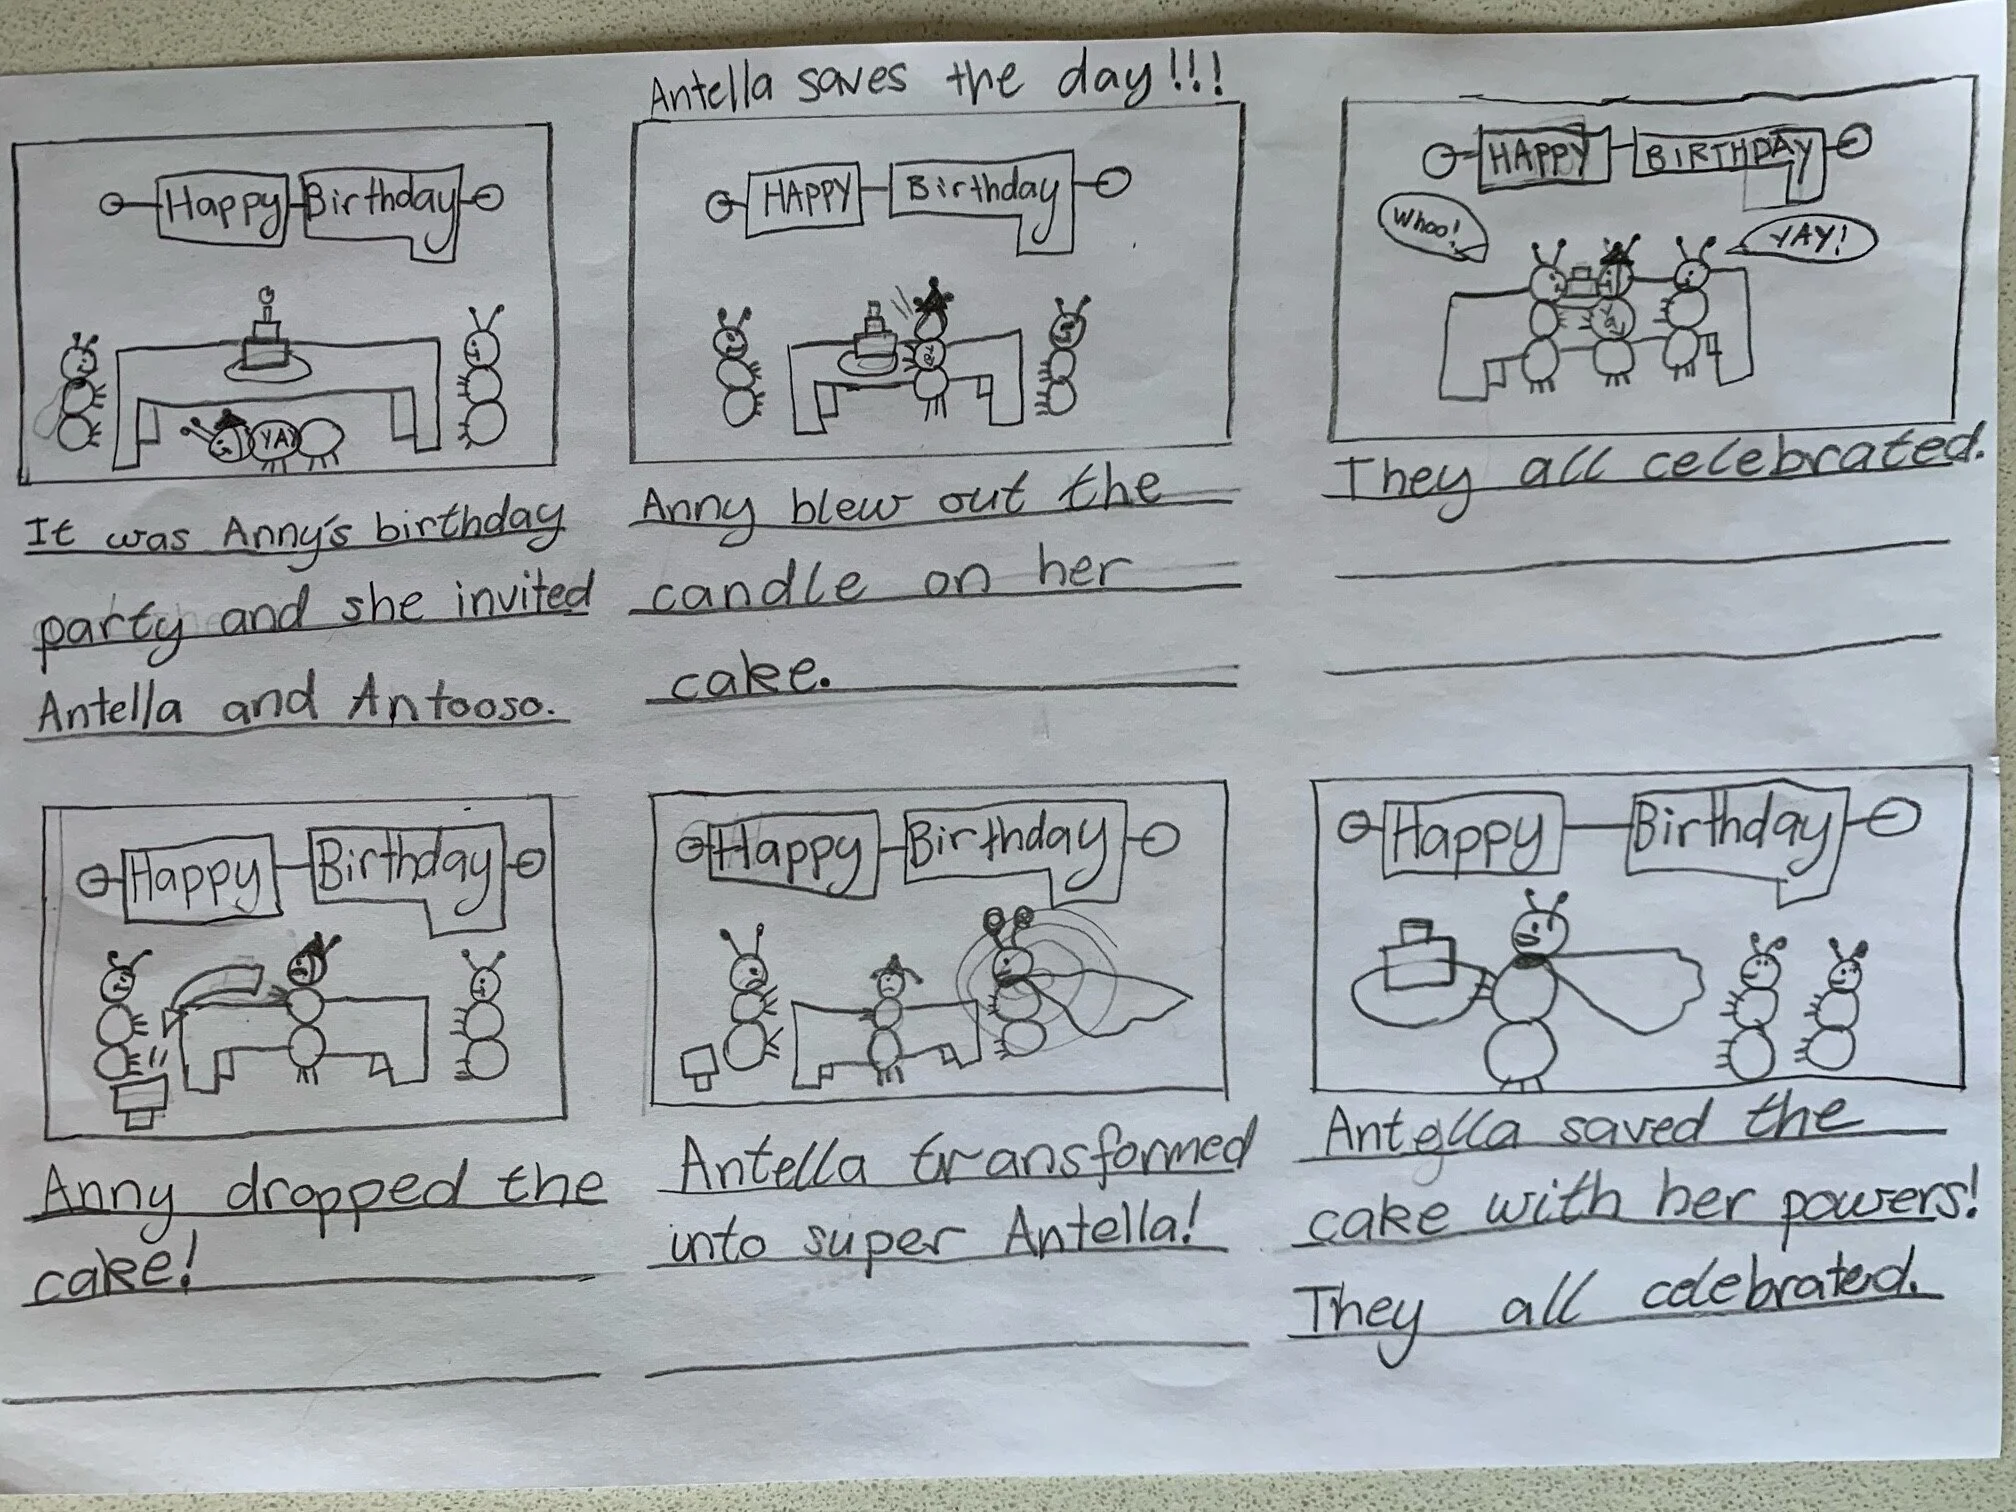 Antella saves the day!!!
Happy Birthday
YAY
It was Anny's birthday
party and she invited
Antella and Antooso.
HAPPY Birthday
Anny blew out the
candle on her
cake.
HAPPY BIRTHDAY
Whoo!
YAY!
They all celebrated.
Happy Birthday
Anny dropped the
cake!
Happy Birthday
Antella transformed
into super Antella!
Happy Birthday
Antella saved the
cake with her powers!
They all celebrated.